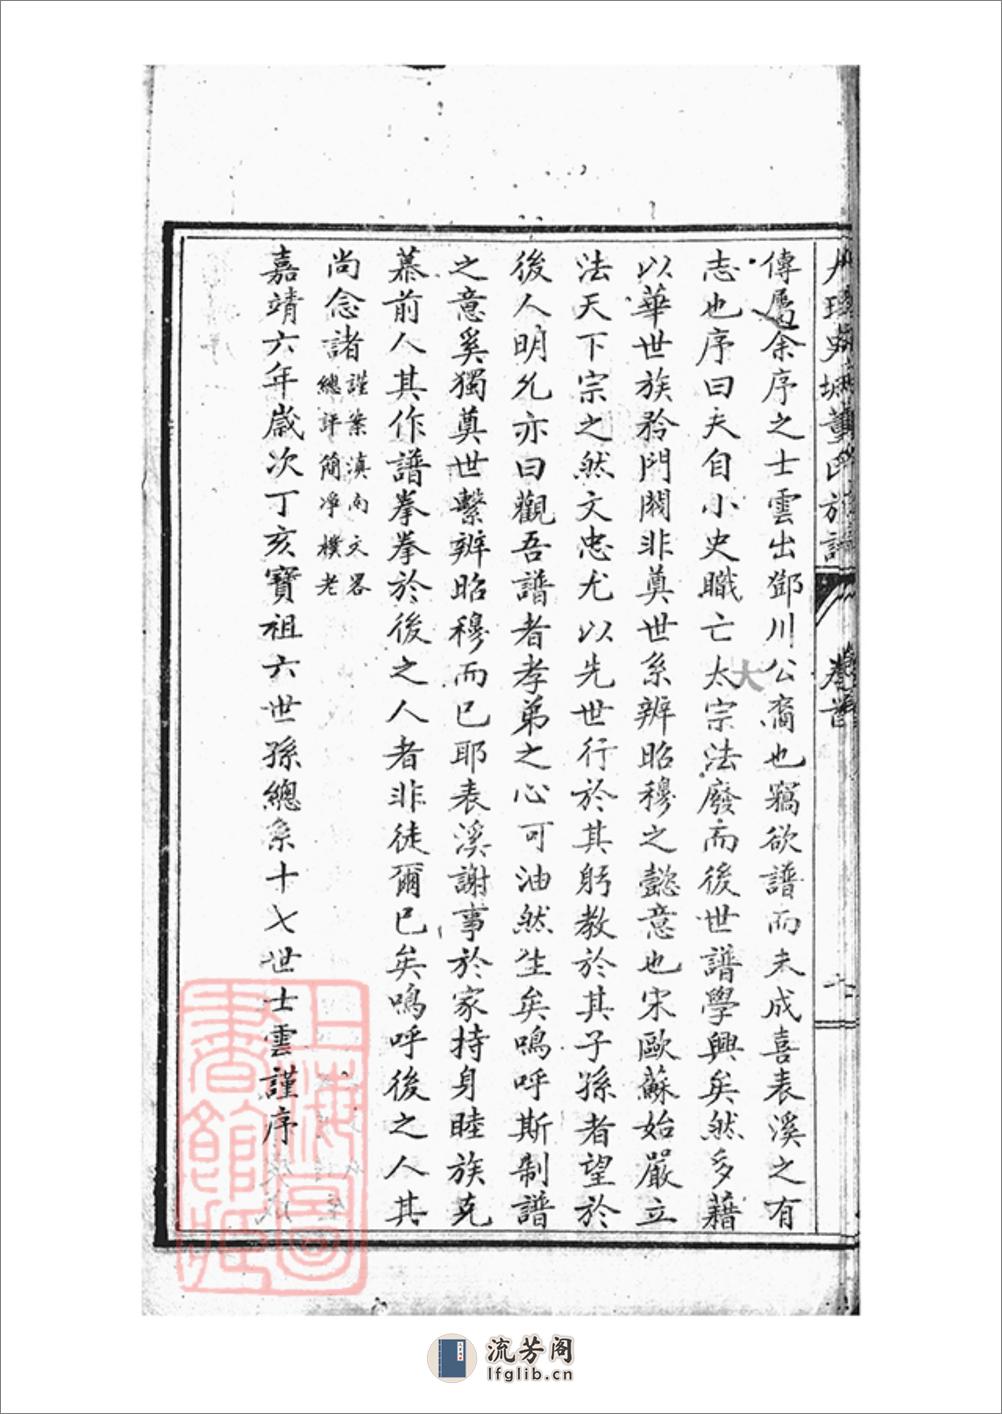 史城董氏族譜
卷首
傳屬余序之士雲出鄧川公裔也竊欲譜而未成喜表溪之有
志也序曰夫自小史職亡太宗法廢而後世譜學興矣然多藉
大
以華世族矜門閥非奠世系辨昭穆之懿意也宋歐蘇始嚴立
法天下宗之然文忠尤以先世行於其躬教於其子孫者望於
後人明允亦曰觀吾譜者孝弟之心可油然生矣嗚呼斯制譜
之意奚獨奠世繫辨昭穆而已耶表溪謝事於家持身睦族克
慕前人其作譜拳拳於後之人者非徒爾已矣嗚呼後之人其
尚念諸
謹案滇南文畧
總評簡淨樸老
嘉靖六年歲次丁亥寶祖六世孫總系十七世士雲謹序
上海圖書館藏
流芳阁
lfglib.cn